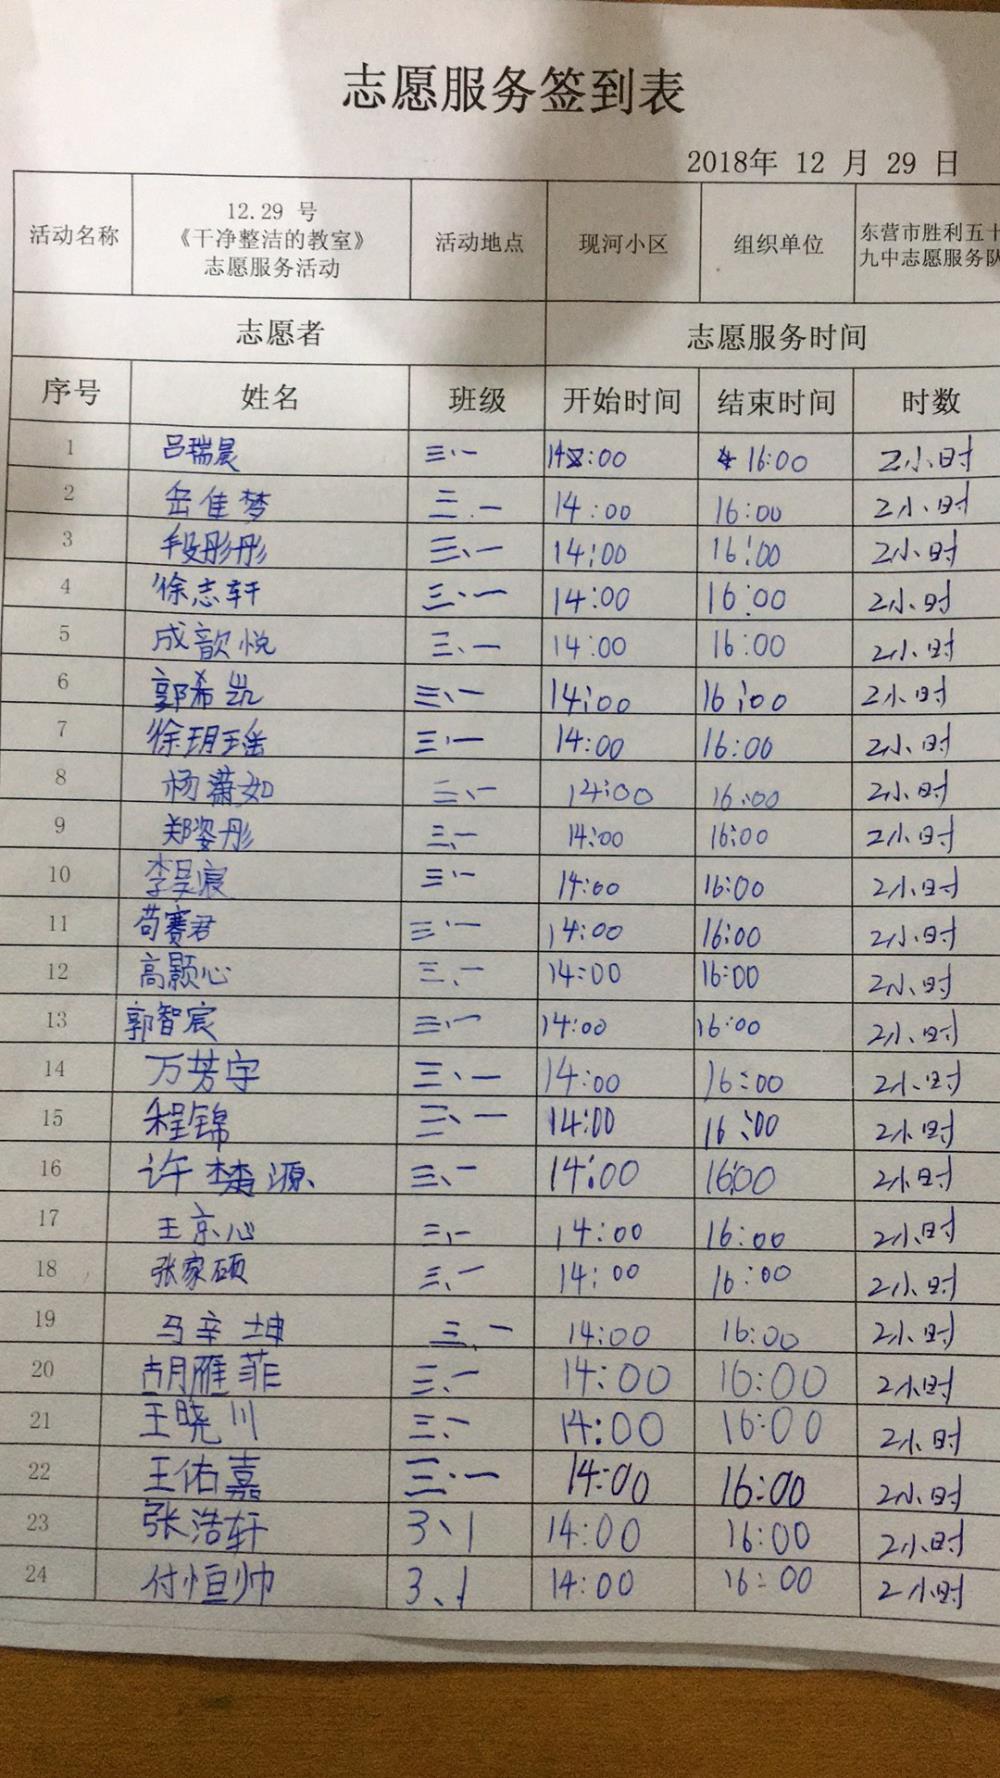 志愿服务签到表
2018年 12 月 29 日
活动名称 12.29 号《干净整洁的教室》志愿服务活动 活动地点 现河小区 组织单位 东营市胜利五十九中志愿服务队
志愿者 志愿服务时间
序号 姓名 班级 开始时间 结束时间 时数
1 吕瑞晨 三.一 14:00 16:00 2小时
2 岳佳梦 三.一 14:00 16:00 2小时
3 段彤彤 三、一 14:00 16:00 2小时
4 徐志轩 三.一 14:00 16:00 2小时
5 成歆悦 三、一 14:00 16:00 2小时
6 郭希凯 三、一 14:00 16:00 2小时
7 徐玥瑶 三.一 14:00 16:00 2小时
8 杨潇如 三、一 14:00 16:00 2小时
9 郑姿彤 三、一 14:00 16:00 2小时
10 李昊宸 三.一 14:00 16:00 2小时
11 苟赛君 三.一 14:00 16:00 2小时
12 高颢心 三、一 14:00 16:00 2小时
13 郭智宸 三、一 14:00 16:00 2小时
14 万芳宇 三、一 14:00 16:00 2小时
15 程锦 三、一 14:00 16:00 2小时
16 许楚源 三、一 14:00 16:00 2小时
17 王京心 三、一 14:00 16:00 2小时
18 张家硕 三、一 14:00 16:00 2小时
19 马辛坤 三、一 14:00 16:00 2小时
20 胡雁菲 三、一 14:00 16:00 2小时
21 王晓川 三、一 14:00 16:00 2小时
22 王佑嘉 三.一 14:00 16:00 2小时
23 张浩轩 3、1 14:00 16:00 2小时
24 付恒帅 3、1 14:00 16:00 2小时